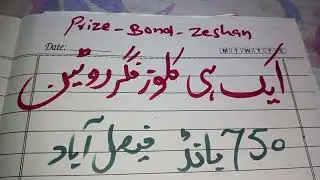 Prize - Bond - Zeshan
Date: M T W T F S
ایک ہی کلوز فگر روٹین
750 بانڈ فیصل آباد